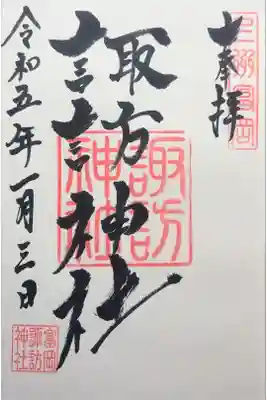 奉拝
上州富岡
諏訪神社
諏訪神社
令和五年一月三日
富岡
諏訪
神社